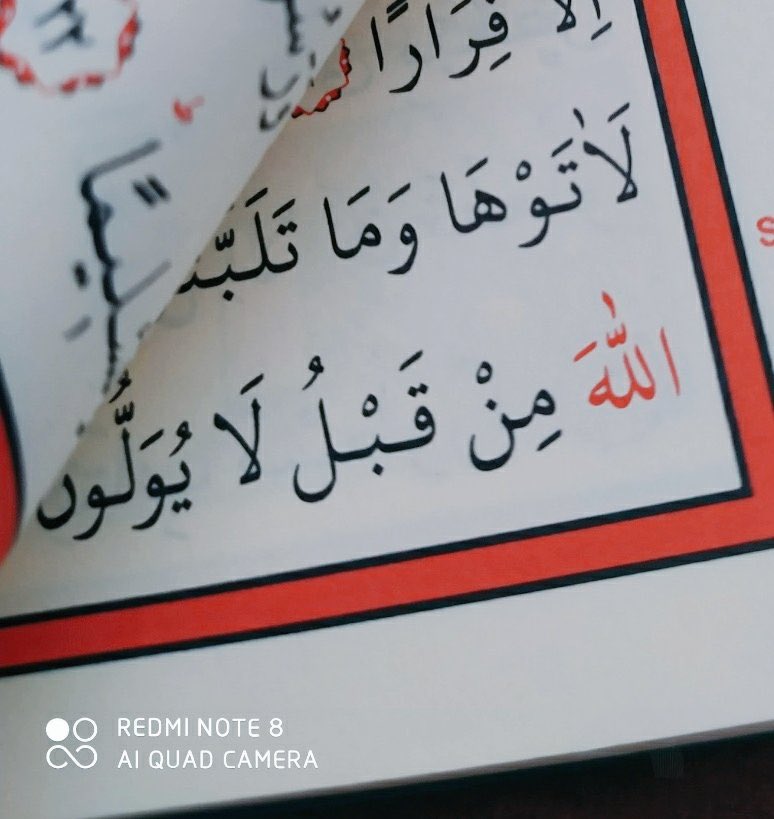 إِلَّا فِرَارًا
لَاٰتَوْهَا وَمَا تَلَبَّ
اللّٰهَ مِنْ قَبْلُ لَا يُوَلُّونَ
REDMI NOTE 8
AI QUAD CAMERA